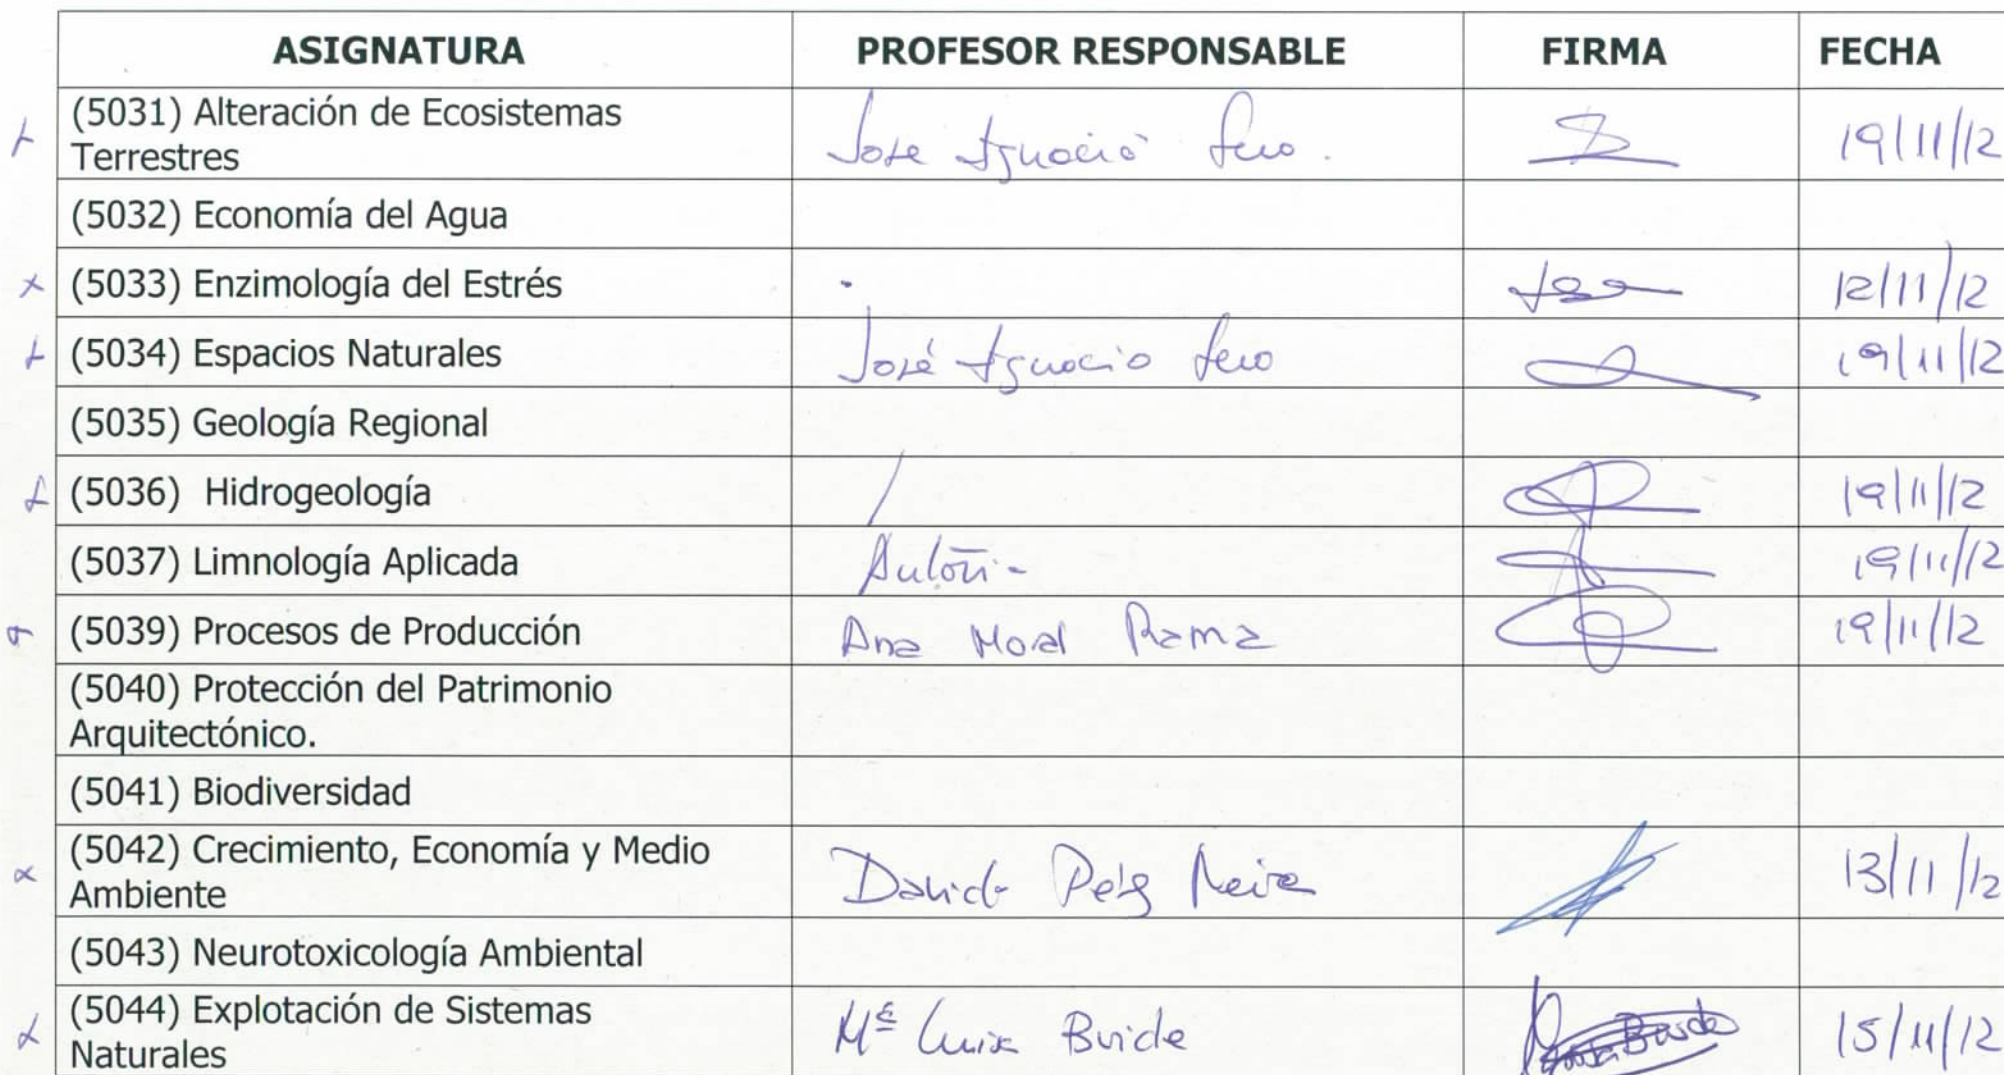 ASIGNATURA PROFESOR RESPONSABLE FIRMA FECHA
(5031) Alteración de Ecosistemas
Terrestres
José Ignacio 19/11/12
(5032) Economía del Agua
(5033) Enzimología del Estrés 12/11/12
(5034) Espacios Naturales José Ignacio 19/11/12
(5035) Geología Regional
(5036) Hidrogeología 19/11/12
(5037) Limnología Aplicada 19/11/12
(5039) Procesos de Producción Ana Moral Rama 19/11/12
(5040) Protección del Patrimonio
Arquitectónico.
(5041) Biodiversidad
(5042) Crecimiento, Economía y Medio
Ambiente
David 13/11/12
(5043) Neurotoxicología Ambiental
(5044) Explotación de Sistemas
Naturales
Mª Luisa Buide 15/11/12